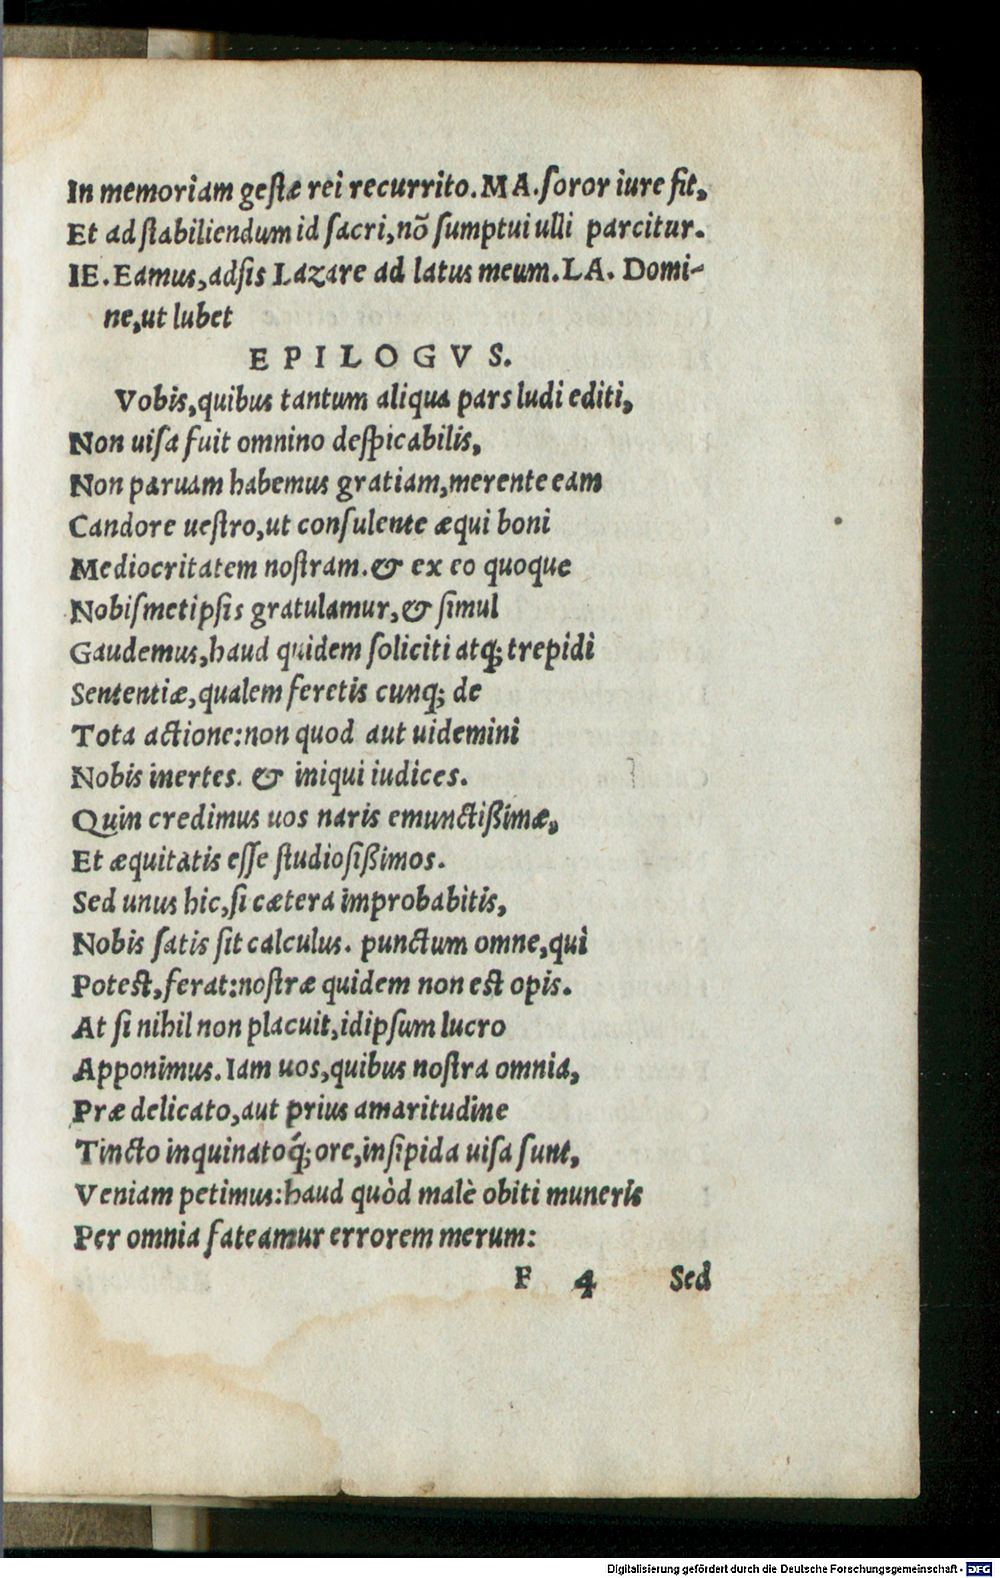 In memoriam gestæ rei recurrito. MA. soror iure fit,
Et ad stabiliendum id sacri, nõ sumptui ulli parcitur.
IE. Eamus, adsis Lazare ad latus meum. LA. Domi-
ne, ut lubet
EPILOGVS.
Vobis, quibus tantum aliqua pars ludi editi,
Non uisa fuit omnino despicabilis,
Non paruam habemus gratiam, merente eam
Candore uestro, ut consulente æqui boni
Mediocritatem nostram. & ex eo quoque
Nobismetipsis gratulamur, & simul
Gaudemus, haud quidem soliciti atq; trepidi
Sententiæ, qualem feretis cunq; de
Tota actione: non quod aut uidemini
Nobis inertes. & iniqui iudices.
Quin credimus uos naris emunctißimæ,
Et æquitatis esse studiosißimos.
Sed unus hic, si cætera improbabitis,
Nobis satis sit calculus. punctum omne, qui
Potest, ferat: nostræ quidem non est opis.
At si nihil non placuit, idipsum lucro
Apponimus. Iam uos, quibus nostra omnia,
Præ delicato, aut prius amaritudine
Tincto inquinatoq́; ore, insipida uisa sunt,
Veniam petimus: haud quòd malè obiti muneris
Per omnia fateamur errorem merum:
F 4 Sed
Digitalisierung gefördert durch die Deutsche Forschungsgemeinschaft - DFG